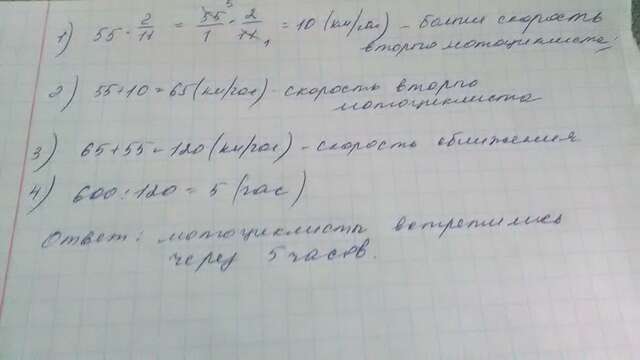 1) 55 · 2/11 = 55/1 · 2/11 = 10 (км/час) – больши скорость
второго мотоциклиста;
2) 55+10=65 (км/час) - скорость второго
мотоциклиста
3) 65+55=120 (км/час) – скорость сближения
4) 600:120=5 (час)
Ответ: мотоциклисты встретились
через 5 часов.